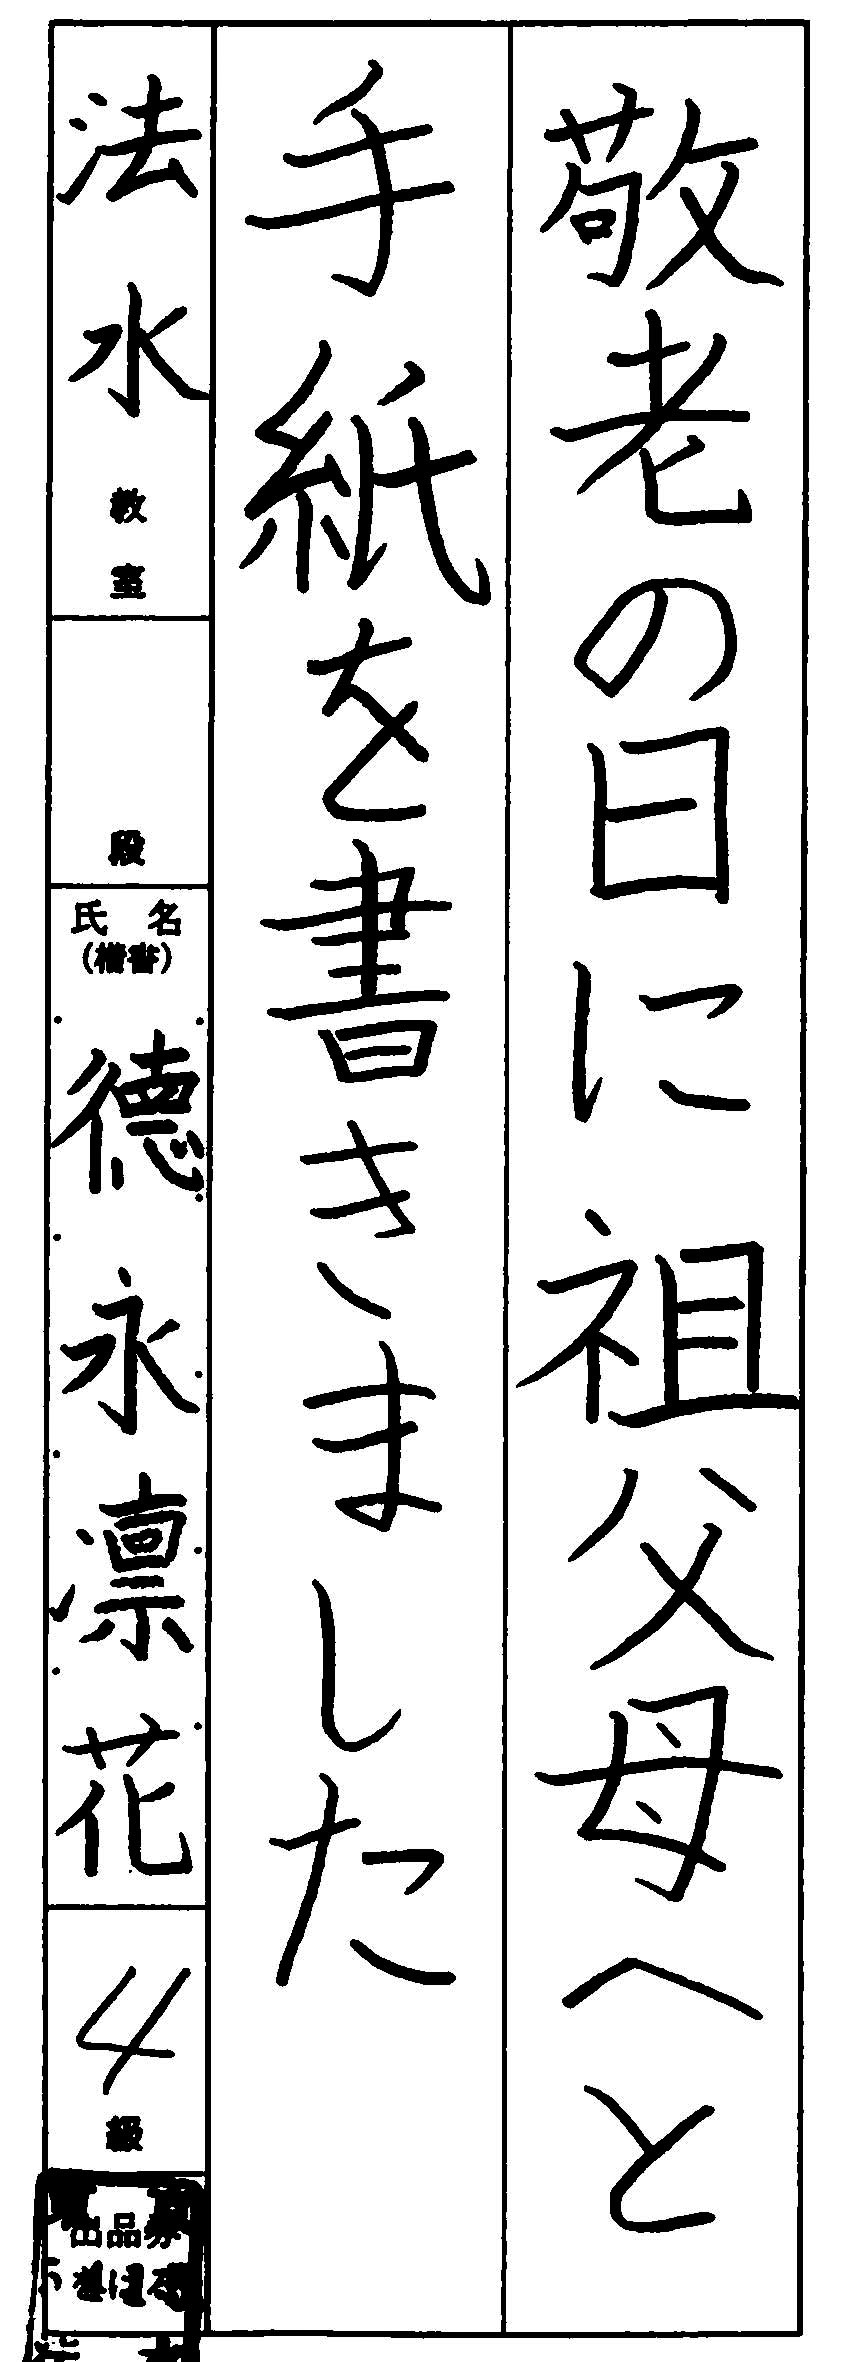 敬老の日に祖父母へと
手紙を書きました
法水教室
段
氏名
(楷書)
徳永凛花
4級
出品券